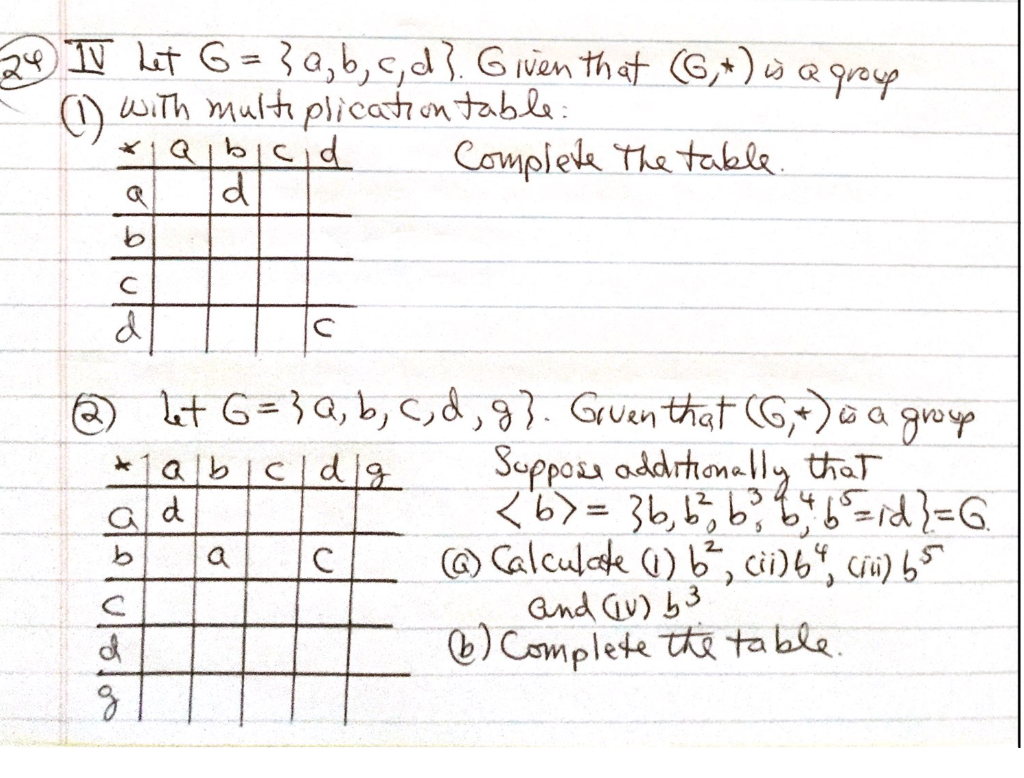 24 IV Let G = {a,b,c,d}. Given that (G,*) is a group
(1) with multiplication table:
* | a | b | c | d Complete the table.
a | | d | |
b | | | |
c | | | |
d | | | | c
(2) Let G = {a, b, c, d, g}. Given that (G,*) is a group
* | a | b | c | d | g Suppose additionally that
a | d | | | | <b> = {b, b², b³, b⁴, b⁵=id}=G.
b | | a | | c | (a) Calculate (i) b², (ii) b⁴, (iii) b⁵
c | | | | | and (iv) b³
d | | | | | (b) Complete the table.
g | | | | |